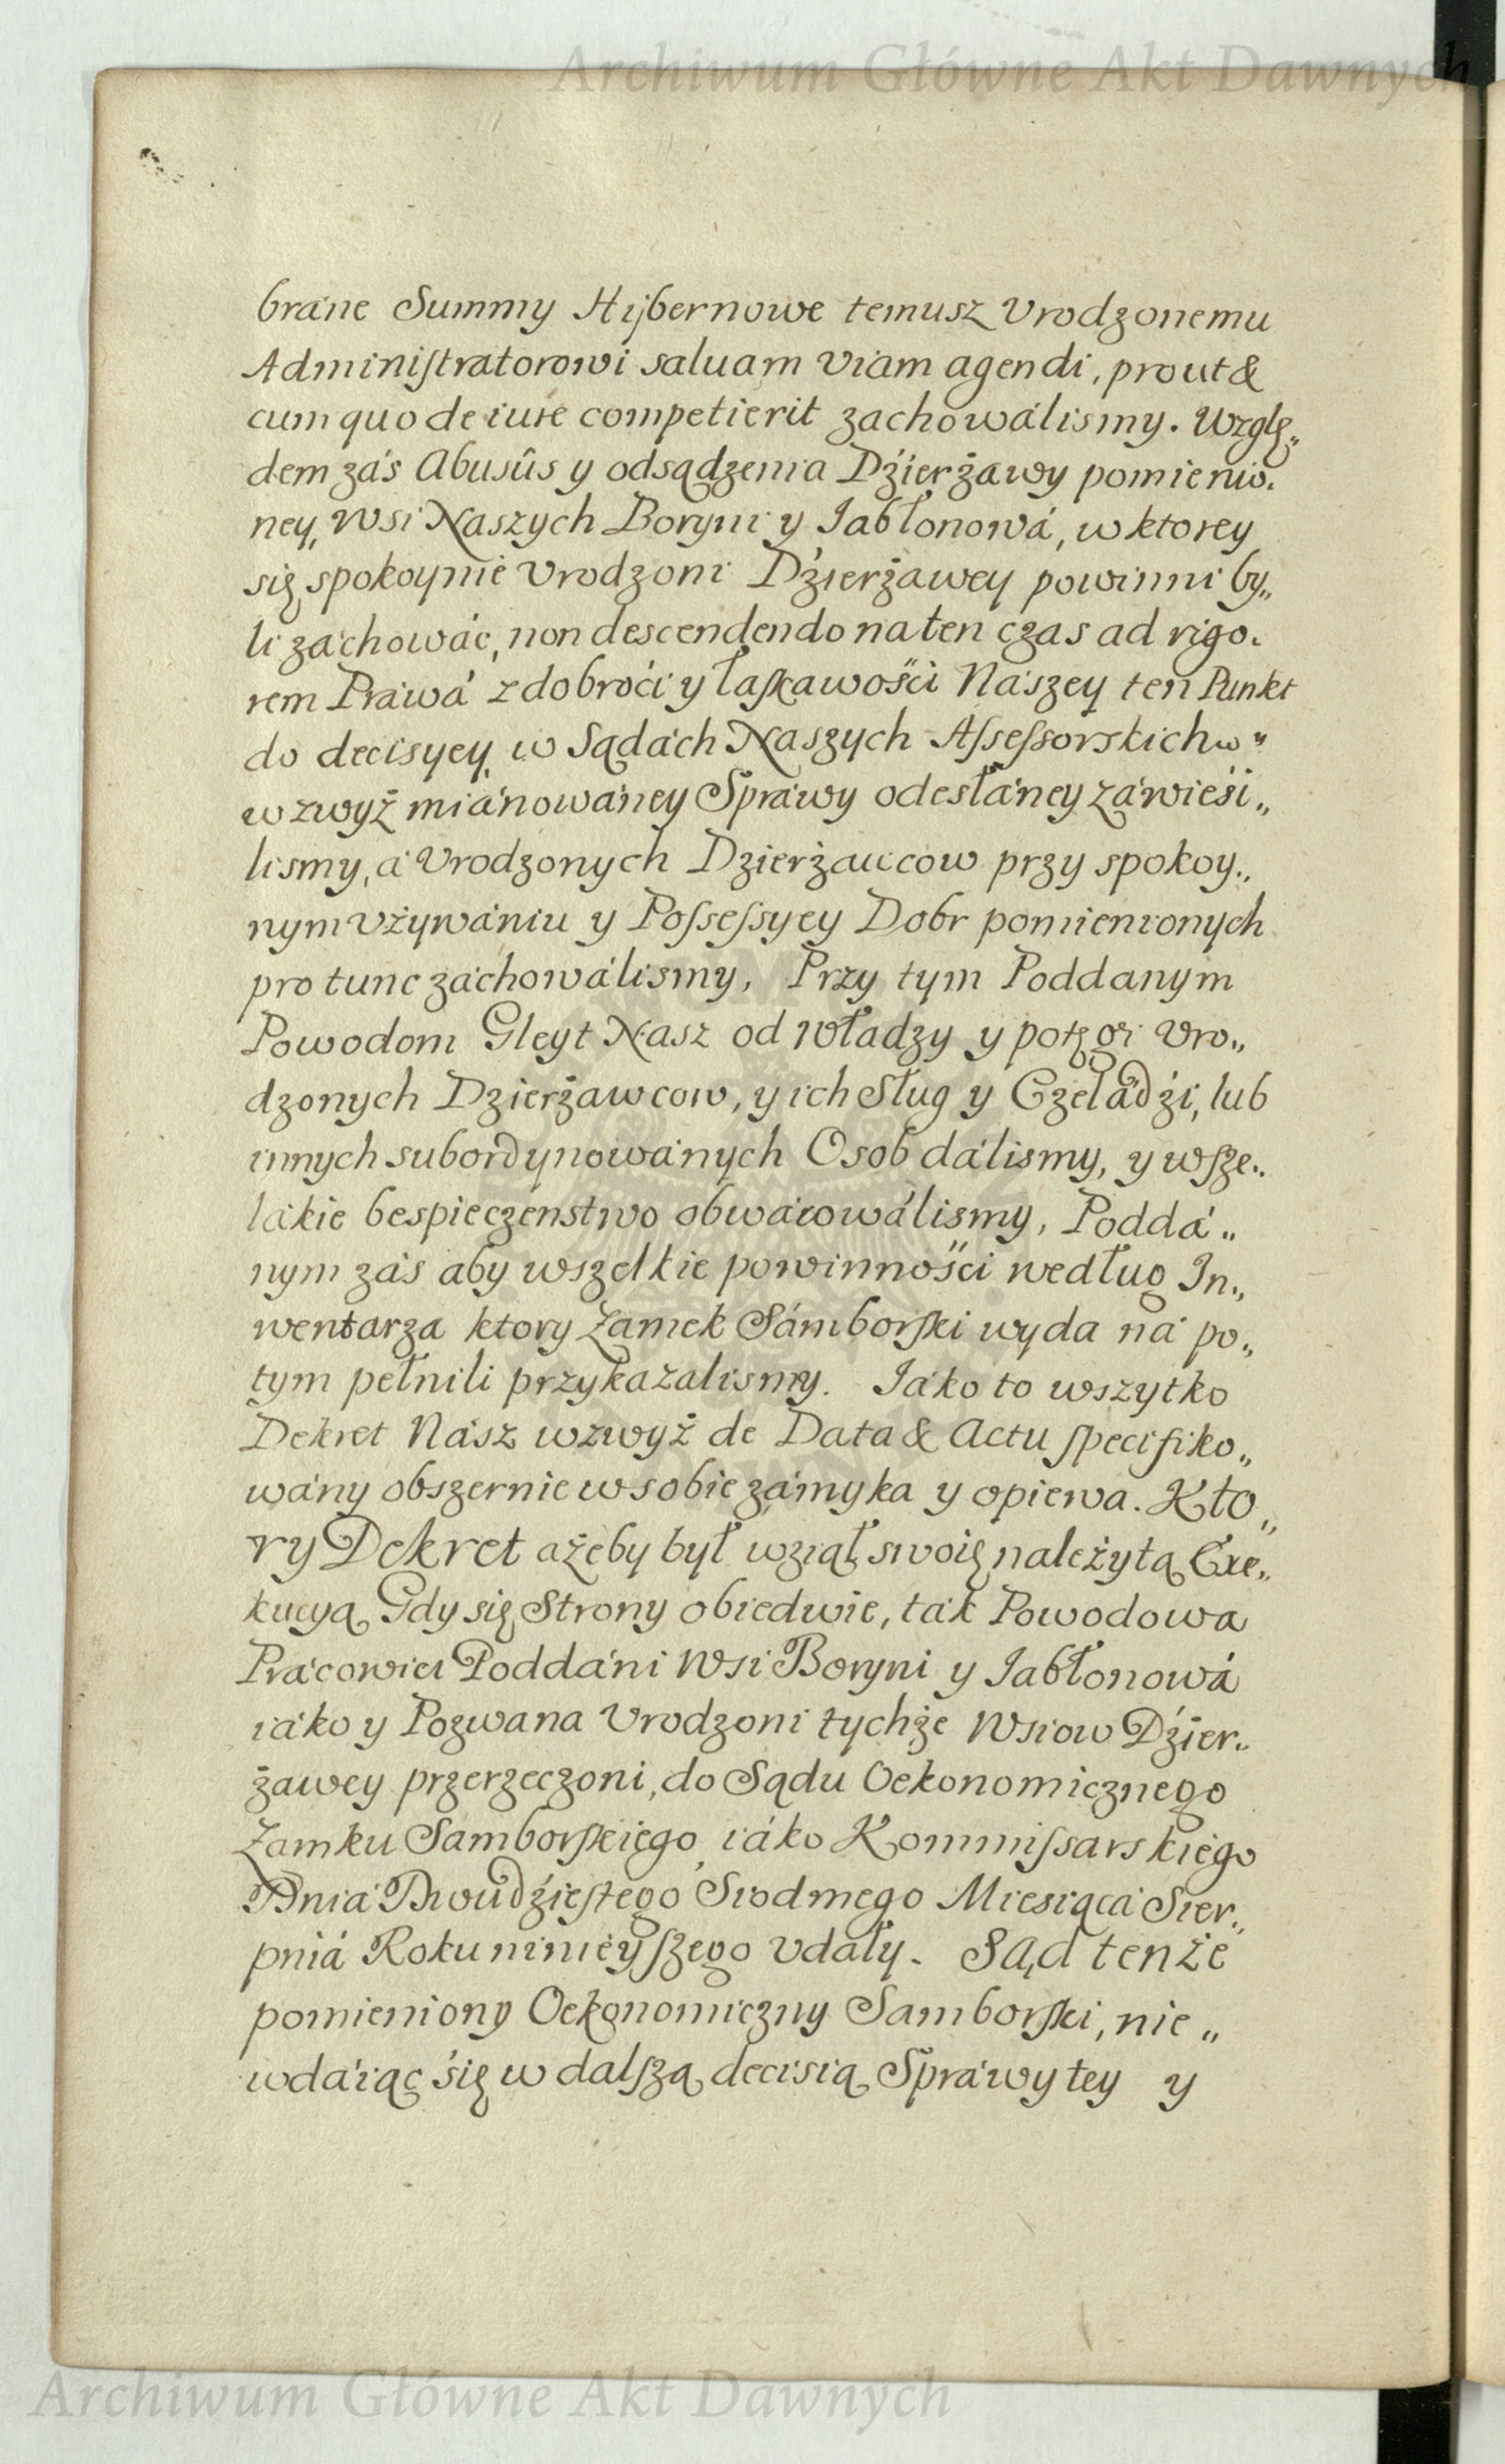 Archiwum Główne Akt Dawnych
bráne Summy Hijbernowe temusz Vrodzonemu
Adminiſtratorowi saluam viam agendi, prout &
cum quo de iure competierit zachowálismy. Wzglę„
dem zás Abusûs y odsądzenia Dźierżawy pomienio.
ney, Wsi Naszych Boryni y Jabłonowá, w ktorey
się spokoynie Vrodzoni Dźierżawcy powinni by„
li záchowáć, non descendendo na ten czas ad rigo.
rem Práwá z dobroći y łaſkáwośći Nászey ten Punkt
do decisyey, w Sądách Naszych Aſseſsorskich w„
w zwyż miánowáney Spráwy odesłáney záwieśi„
lismy, á Vrodzonych Dzierżawcow przy spokoy„
nym vżywániu y Poſseſsyey Dobr pomienionych
pro tunc záchowálismy, Przy tym Poddanym
Powodom Gleyt Nasz od władzy y potęgi Vro„
dzonych Dzierżawcow, y ich Sług y Czeládźi, lub
innych subordynowánych Osob dálismy, y wſze„
lákie bespieczenstwo obwárowálismy, Poddá„
nym zás aby wszelkie powinnośći według In„
wentarza ktory Zamek Sámborſki wyda ná po„
tym pełnili przykazalismy. Jáko to wszytko
Dekret Nász wzwyż de Data & Actu ſpecifiko„
wány obszernie w sobie zámyka y opiewa. Kto„
ry Dekret ażeby był wziął swoię należytą Exe„
kucyą, Gdy się Strony obiedwie, ták Powodowa
Prácowici Poddáni Wsi Boryni y Jabłonowá
iáko y Pozwana Vrodzoni tychże Wsiow Dźier„
żawcy przerzeczoni, do Sądu Oekonomicznego
Zamku Samborſkiego, iáko Kommiſsarskiego
Dniá Dwudźieſtego Siodmego Miesiącá Sier„
pniá Roku ninieyſzego vdały. Sąd tenże
pomieniony Oekonomiczny Samborſki, nie„
wdáiąc się w dalſzą decisią Spráwy tey y
Archiwum Główne Akt Dawnych